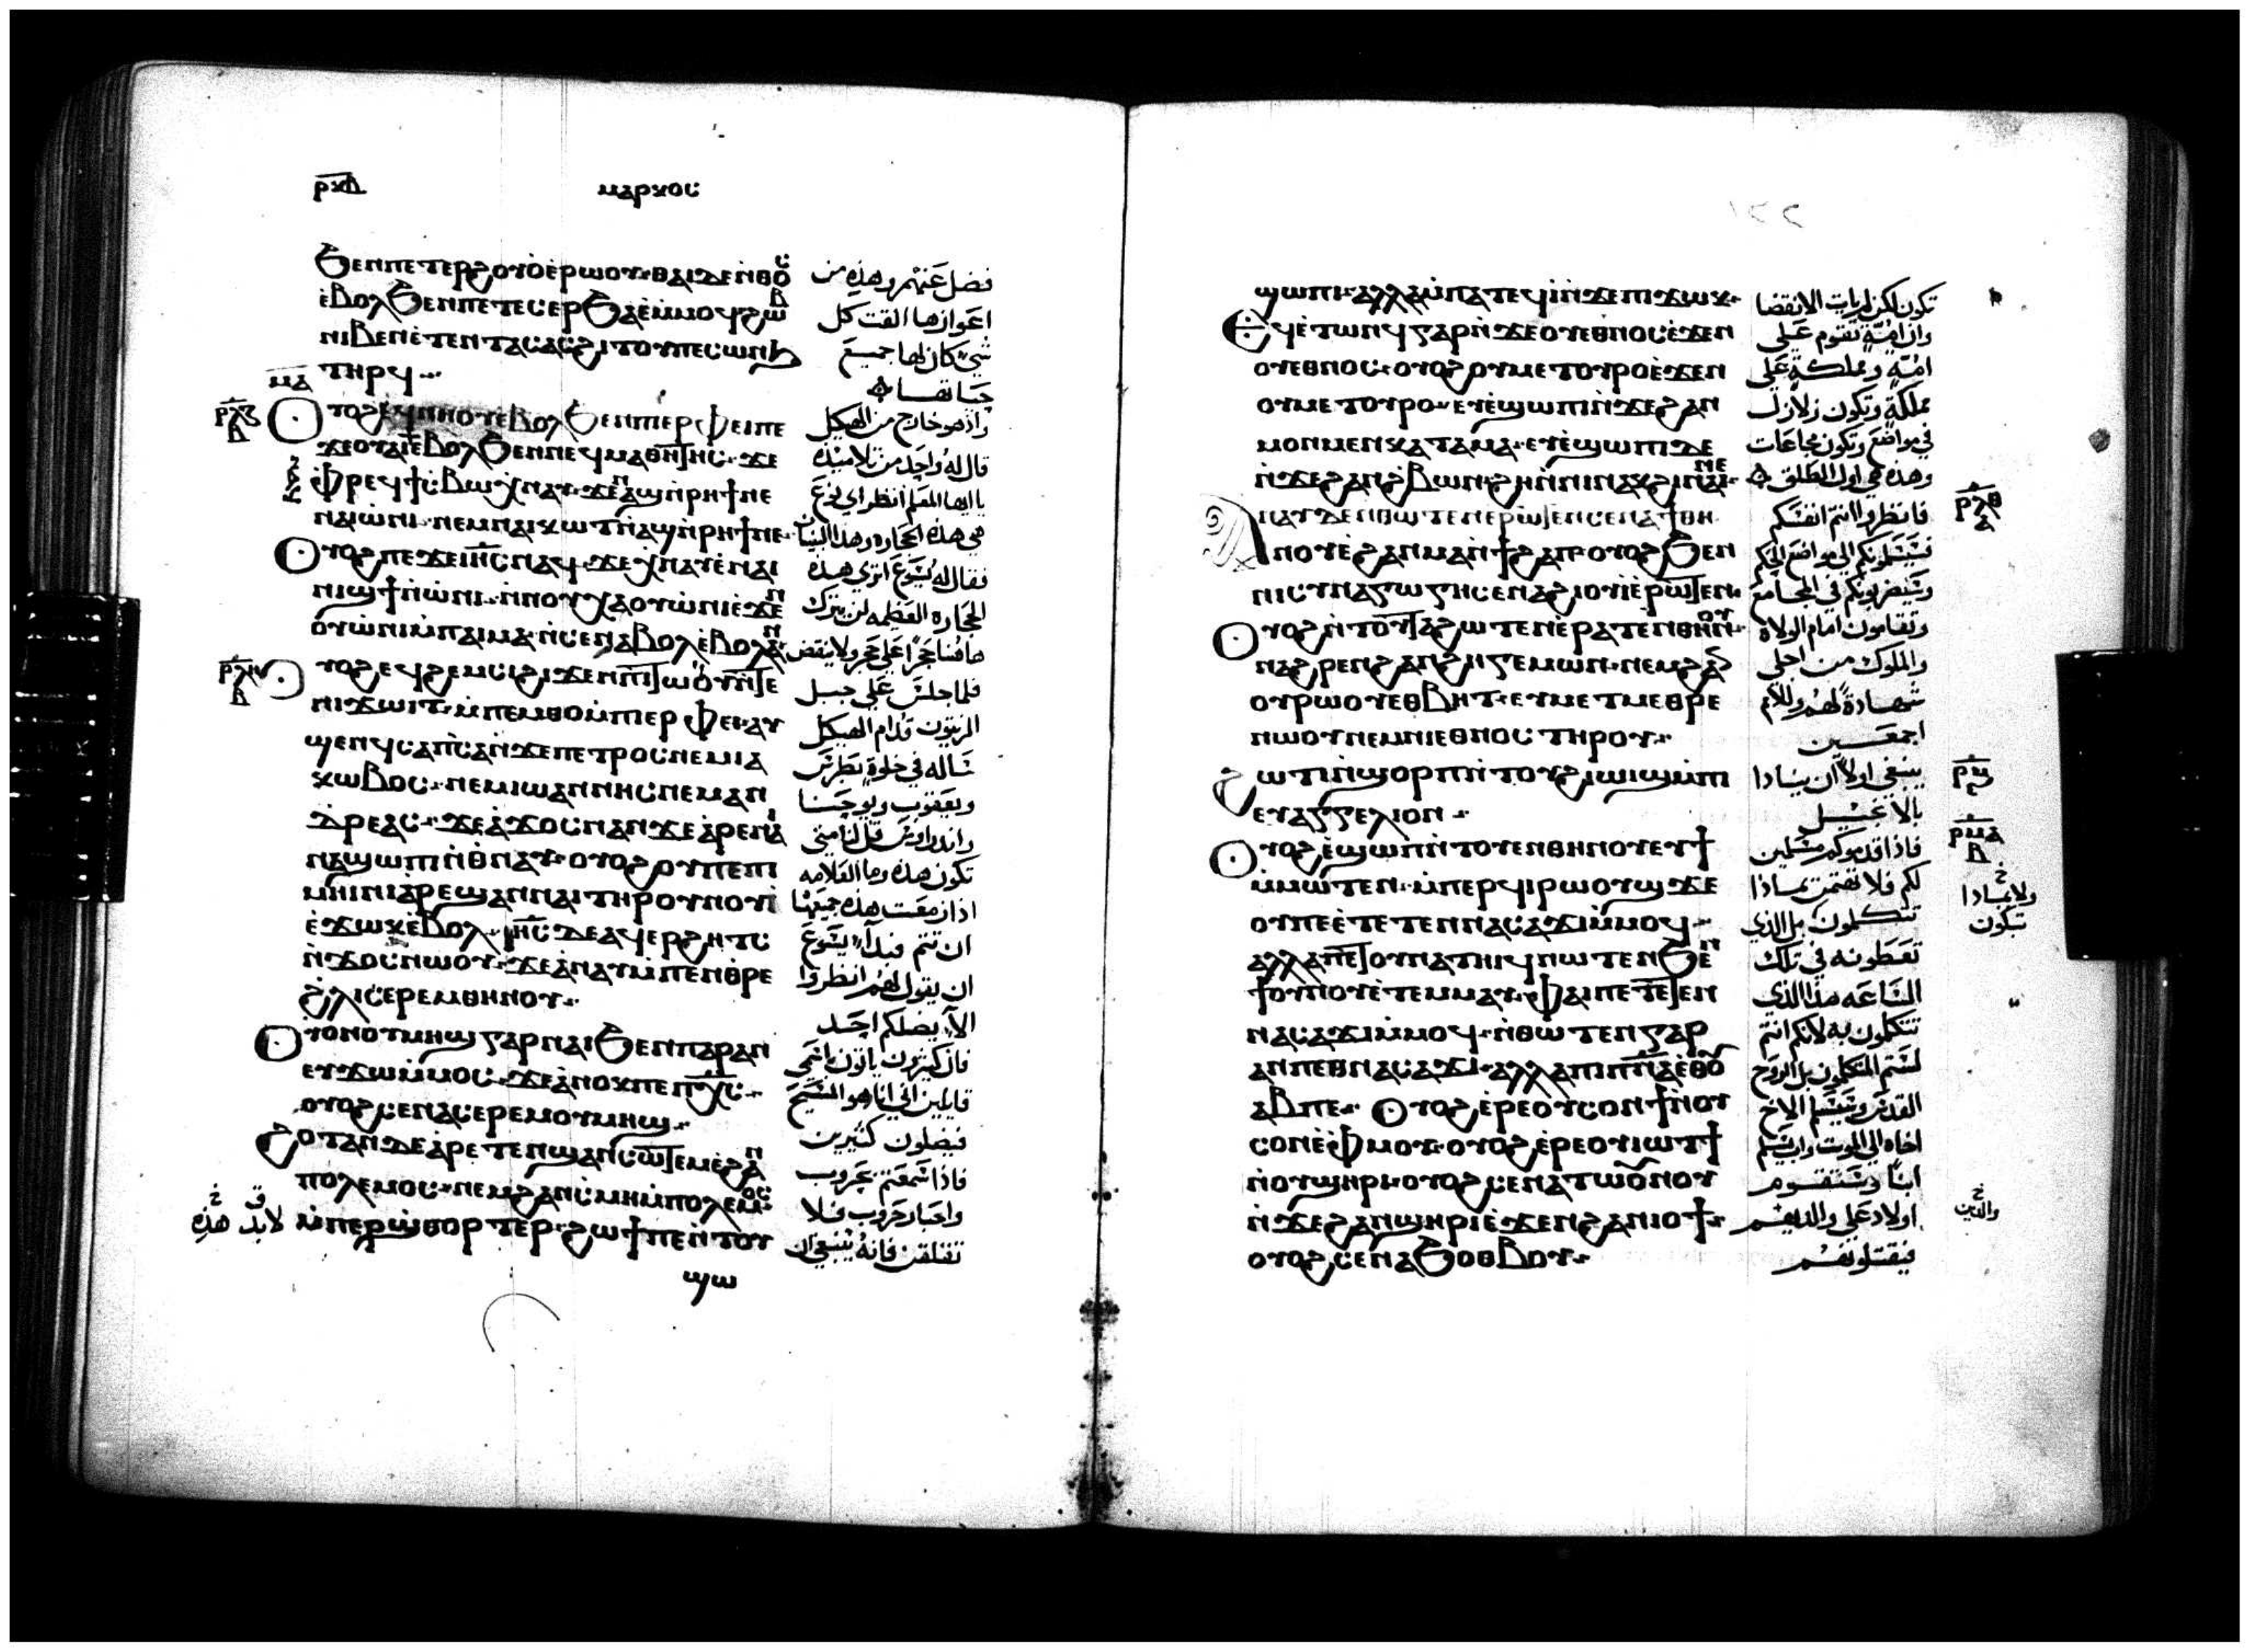 ⲣⲕⲃ ⲙⲁⲣⲕⲟⲥ
ϧⲉⲛⲡⲉⲧⲉⲣϩⲟⲩⲟ̀ⲉ̀ⲣⲱⲟⲩ ⲑⲁⲓⲇⲉⲛ̀ⲑⲟⲥ
ⲉ̀ⲃⲟⲗϧⲉⲛⲡⲉⲧⲉⲥⲉⲣϧⲁⲉ̀ⲙ̀ⲙⲟϥ ϩⲱⲃ
ⲛⲓⲃⲉⲛⲉ̀ⲧⲉⲛⲧⲁⲥⲁⲥϩⲓⲧⲟⲩ ⲡⲉⲥⲱⲛϧ
ⲧⲏⲣϥ
ⲟⲩⲟϩ ⲉϥⲛⲏⲟⲩⲉ̀ⲃⲟⲗϧⲉⲛⲡⲓⲉⲣⲫⲉⲓ ⲡⲉ
ϫⲉⲟⲩⲁⲓⲉ̀ⲃⲟⲗϧⲉⲛⲛⲉϥⲙⲁⲑⲏⲧⲏⲥ ϫⲉ
ⲫⲣⲉϥϯⲥⲃⲱ ⲭⲛⲁⲩ ϫⲉⲁϣⲛ̀ⲣⲏϯⲛⲉ
ⲛⲁⲓⲱ̀ⲛⲓ ⲛⲉⲙⲛⲁⲓⲕⲱⲧ ⲛ̀ⲁϣⲛ̀ⲣⲏϯⲛⲉ
ⲟⲩⲟϩ ⲡⲉϫⲉⲓⲏⲥ ⲛⲁϥ ϫⲉⲭⲛⲁⲩⲉ̀ⲛⲁⲓ
ⲛⲓϣϯⲛ̀ⲱ̀ⲛⲓ ⲛ̀ⲛⲟⲩⲭⲁⲟⲩⲱ̀ⲛⲓⲉ̀ϫⲉⲛ
ⲟⲩⲱ̀ⲛⲓⲙ̀ⲡⲁⲓⲙⲁ ⲛ̀ⲥⲉⲛⲁⲃⲟⲗϥⲉ̀ⲃⲟⲗⲁⲛ
ⲟⲩⲟϩ ⲉϥϩⲉⲙⲥⲓϩⲓϫⲉⲛⲡⲓⲧⲱⲟⲩ ⲛ̀ⲧⲉ
ⲛⲓϫⲱⲓⲧ ⲙ̀ⲡⲉⲙⲑⲟⲙ̀ⲡⲓⲉⲣⲫⲉⲓ ⲁⲩ
ϣⲉⲛϥⲥⲁⲡⲥⲁⲛ̀ϫⲉⲡⲉⲧⲣⲟⲥ ⲛⲉⲙⲓⲁ
ⲕⲱⲃⲟⲥ ⲛⲉⲙⲓⲱⲁⲛⲛⲏⲥ ⲛⲉⲙⲁⲛ
ⲇⲣⲉⲁⲥ ϫⲉⲁ̀ϫⲟⲥⲛⲁⲛϫⲉⲁ̀ⲣⲉⲛⲁⲓ
ⲛⲁϣⲱⲡⲓⲛ̀ⲑⲛⲁⲩ ⲟⲩⲟϩ ⲟⲩⲡⲉⲡⲓ
ⲙⲏⲓⲛⲓⲁ̀ⲣⲉϣⲁⲛⲛⲁⲓⲧⲏⲣⲟⲩⲛⲟⲩⲓ̀
ⲉ̀ϫⲱⲕⲉ̀ⲃⲟⲗ ⲓⲏⲥ ⲇⲉⲁϥⲉⲣϩⲏⲧⲥ
ⲛ̀ϫⲟⲥⲛⲱⲟⲩ ϫⲉⲁ̀ⲛⲁⲩⲙ̀ⲡⲉⲛⲑⲣⲉ
ϩⲗⲓⲥⲉⲣⲉⲙⲑⲏⲛⲟⲩ
ⲟⲩⲟⲛⲟⲩⲙⲏϣ ⲅⲁⲣⲛⲁⲓ̀ϧⲉⲛⲡⲁⲣⲁⲛ
ⲉⲩϫⲱⲙ̀ⲙⲟⲥ ϫⲉⲁ̀ⲛⲟⲕⲡⲉⲡⲭⲥ
ⲟⲩⲟϩ ⲥⲉⲛⲁⲥⲉⲣⲉⲙⲟⲩⲙⲏϣ
ϩⲟⲧⲁⲛⲇⲉⲁ̀ⲣⲉⲧⲉⲛϣⲁⲛⲥⲱⲧⲉⲙⲉ̀ϩⲁⲛ
ⲡⲟⲗⲉⲙⲟⲥ ⲛⲉⲙϩⲁⲛⲥ̀ⲙⲏⲙ̀ⲡⲟⲗⲉⲙⲟⲥ
ⲙ̀ⲡⲉⲣϣⲑⲟⲣⲧⲉⲣ ϩⲱϯⲡⲉⲛ̀ⲧⲟⲩ
ϣⲱ
فضل عنهم وهذه من
اعوازها القت كل
شي كان لها جميع
حياتها
واذ هو خارج من الهيكل
قال له واحد من تلاميذه
يا ايها المعلم انظر اي نوع
هي هذه الحجاره وهذا البنيان
فقال له يسوع اتري هذه
الحجاره العظيمه لن يترك
هاهنا حجرا علي حجر ولا ينقض
فلما جلس علي جبل
الزيتون قدام الهيكل
ساله في خلوة بطرس
ويعقوب ويوحنا
واندراوس قل لنا متي
تكون هذه وما العلامه
اذا ازمعت هذه جميعها
ان تتم فبدا يسوع
ان يقول لهم انظروا
الا يضلكم احد
فان كثيرون ياتون باسمي
قايلين اني انا هو المسيح
فيضلون كثيرين
فاذا سمعتم بحروب
واخبار حروب فلا
تقلقن فانه ينبغي ان
لابد هذه
ϣⲱⲡⲓ ⲁⲗⲗⲁⲙ̀ⲡⲁⲧⲉϥⲓ̀ⲛ̀ϫⲉⲡⲓϫⲱⲕ
ⲉϥⲉ̀ⲧⲱⲛϥ ⲅⲁⲣⲛ̀ϫⲉⲟⲩⲉⲑⲛⲟⲥ ⲉ̀ϫⲉⲛ
ⲟⲩⲉⲑⲛⲟⲥ ⲟⲩⲟϩ ⲟⲩⲙⲉⲧⲟⲩⲣⲟⲉ̀ϫⲉⲛ
ⲟⲩⲙⲉⲧⲟⲩⲣⲟ ⲉⲩⲉ̀ϣⲱⲡⲓⲛ̀ϫⲉϩⲁⲛ
ⲙⲟⲛⲙⲉⲛⲕⲁⲧⲁⲙⲁ ⲉⲩⲉ̀ϣⲱⲡⲓⲇⲉ
ⲛ̀ϫⲉϩⲁⲛϩ̀ⲃⲱⲛ
ⲛⲁⲩⲇⲉⲛⲑⲱⲧⲉⲛⲉⲣⲱⲧⲉⲛ ⲥⲉⲛⲁϯⲑⲏ
ⲛⲟⲩⲉ̀ϩⲁⲛⲙⲁⲛ̀ϯϩⲁⲡ ⲟⲩⲟϩ ϧⲉⲛ
ⲛⲓⲥⲩⲛⲁⲅⲱⲅⲏ ⲥⲉⲛⲁϩⲓⲟⲩⲓ̀ⲉ̀ⲣⲱⲧⲉⲛ
ⲟⲩⲟϩ ⲛ̀ⲧⲟⲩⲧⲁϩⲱⲧⲉⲛⲉ̀ⲣⲁⲧⲉⲛⲑⲏⲛⲟⲩ
ⲛⲁϩⲣⲉⲛϩⲁⲛϩⲏⲅⲉⲙⲱⲛ ⲛⲉⲙϩⲁⲛ
ⲟⲩⲣⲱⲟⲩⲉⲑⲃⲏⲧ ⲉⲩⲙⲉⲧⲙⲉⲑⲣⲉ
ⲛⲱⲟⲩⲛⲉⲙⲛⲓⲉⲑⲛⲟⲥ ⲧⲏⲣⲟⲩ
ϩⲱϯⲛ̀ϣⲟⲣⲡ ⲛ̀ⲧⲟⲩϩⲓⲱⲓϣⲙ̀ⲡⲓ
ⲉⲩⲁⲅⲅⲉⲗⲓⲟⲛ
ⲟⲩⲟϩ ⲉ̀ϣⲱⲡ ⲛ̀ⲧⲟⲩⲉⲛⲑⲏⲛⲟⲩ ⲉⲩϯ
ⲙ̀ⲙⲱⲧⲉⲛ ⲙ̀ⲡⲉⲣϥⲓⲣⲱⲟⲩϣ ϫⲉ
ⲟⲩⲡⲉⲉ̀ⲧⲉⲧⲉⲛⲛⲁⲥⲁϫⲓⲙ̀ⲙⲟϥ
ⲁⲗⲗⲁⲡⲉⲧⲟⲩⲛⲁⲧⲏⲓϥ ⲛⲱⲧⲉⲛϧⲉⲛ
ϯⲟⲩⲛⲟⲩⲉ̀ⲧⲉⲙⲙⲁⲩ ⲫⲁⲓⲡⲉⲧⲉⲧⲉⲛ
ⲛⲁⲥⲁϫⲓⲙ̀ⲙⲟϥ ⲛ̀ⲑⲱⲧⲉⲛ ⲅⲁⲣ
ⲁⲛⲡⲉⲑⲛⲁⲥⲁϫⲓ ⲁⲗⲗⲁⲡⲓⲡⲛⲁⲉ̀ⲑⲟⲩ
ⲁⲃⲡⲉ ⲟⲩⲟϩ ⲉ̀ⲣⲉⲟⲩⲥⲟⲛϯⲛⲟⲩ
ⲥⲟⲛⲉ̀ⲫⲙⲟⲩ ⲟⲩⲟϩ ⲉ̀ⲣⲉⲟⲩⲓⲱⲧϯ
ⲛ̀ⲟⲩϣⲏⲣⲓ ⲟⲩⲟϩ ⲥⲉⲛⲁⲧⲱⲟⲩⲛⲟⲩ
ⲛ̀ϫⲉϩⲁⲛϣⲏⲣⲓⲉ̀ϫⲉⲛϩⲁⲛⲓⲟϯ
ⲟⲩⲟϩ ⲥⲉⲛⲁϧⲟⲑⲃⲟⲩ
تكون لكن لم يات الانقضا
وان امة تقوم علي
امة ومملكة علي
مملكة وتكون زلازل
في مواضع وتكون مجاعات
وهذه هي اول الطلق
فانظروا انتم انفسكم
فسيسلمونكم الي مواضع الحكم
وسيضربونكم في المجامع
وتقامون امام الولاة
والملوك من اجلي
شهادة لهم وللامم
اجمعين
ينبغي اولا ان ينادا
بالانجيل
فاذا قدموكم مسلمين
لكم فلا تهتمن بماذا
تتكلمون بل الذي
تعطونه في تلك
الساعه هذا الذي
تتكلمون به لانكم انتم
لستم المتكلمون بل الروح
القدس وسيسلم الاخ
اخاه الي الموت واب يسلم
ابنا وستقوم
اولاد علي والديهم
فيقتلونهم
ولا بماذا
تكون
والدين